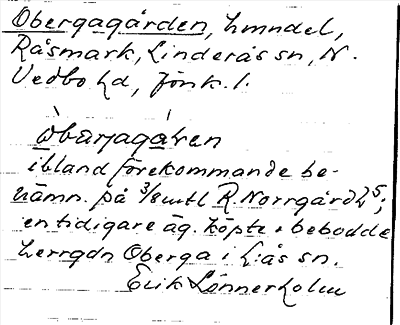 Obergagården, hmndel,
Råsmark, Linderås sn, N.
Vedbo hd, Jönk. l.
ibland förekommande be-
nämn. på 3/8 mtl R. Norrgård
en tidigare äg. köpte o bebodde
herrgdn Oberga i L:ås sn.
Erik Lönnerholm